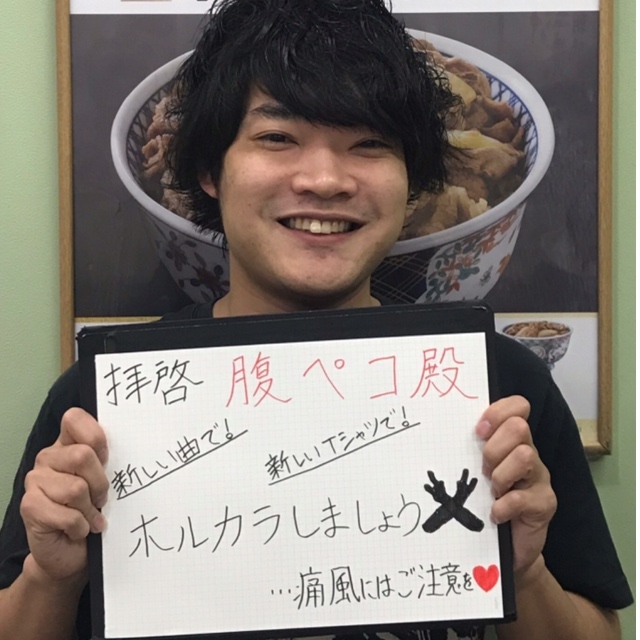 拝啓 腹ペコ殿
新しい曲で!
新しいTシャツで!
ホルカラしましょう
…痛風にはご注意を♥